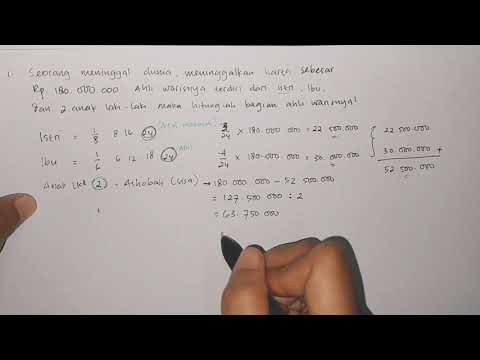 1. Seorang meninggal dunia, meninggalkan harta sebesar
Rp 180.000.000 Ahli warisnya terdiri dari istri, Ibu,
dan 2 anak laki-laki. maka hitunglah bagian ahli warisnya!
Istri = 1/8 8 16 24 3/24 × 180.000.000 = 22.500.000
Ibu = 1/6 6 12 18 24 4/24 × 180.000.000 = 30.000.000
22.500.000
30.000.000 +
52.500.000
Anak Lk (2) = Ashobah (sisa) → 180.000.000 – 52.500.000
= 127.500.000 : 2
= 63.750.000